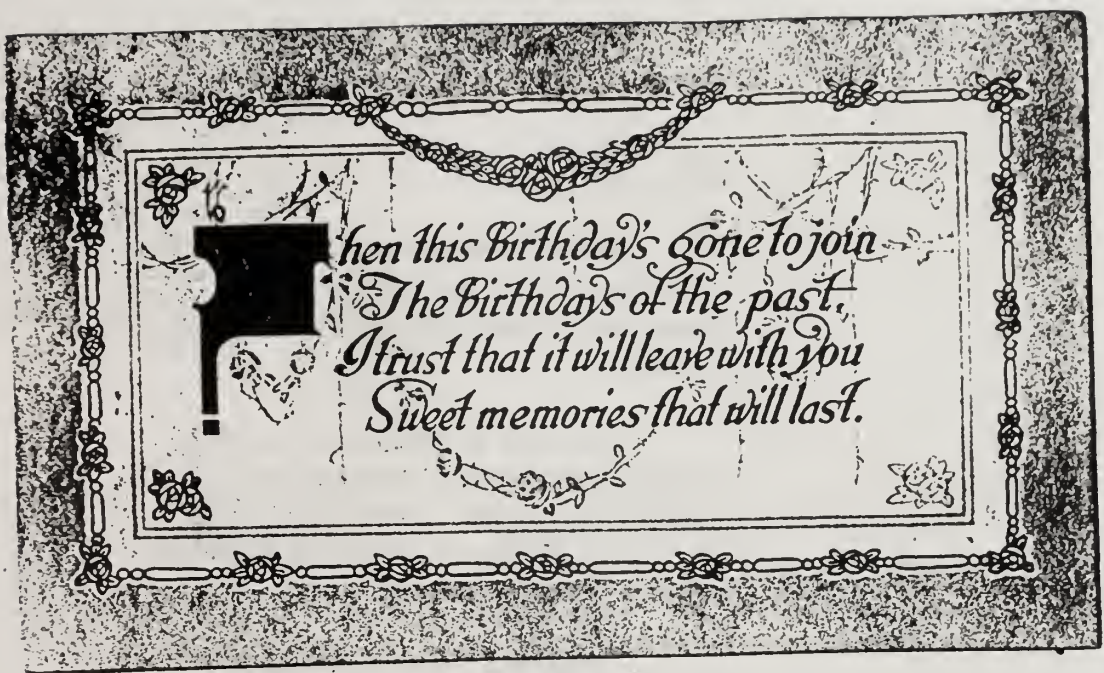 hen this Birthday's gone to join
The Birthdays of the past,
I trust that it will leave with you
Sweet memories that will last.